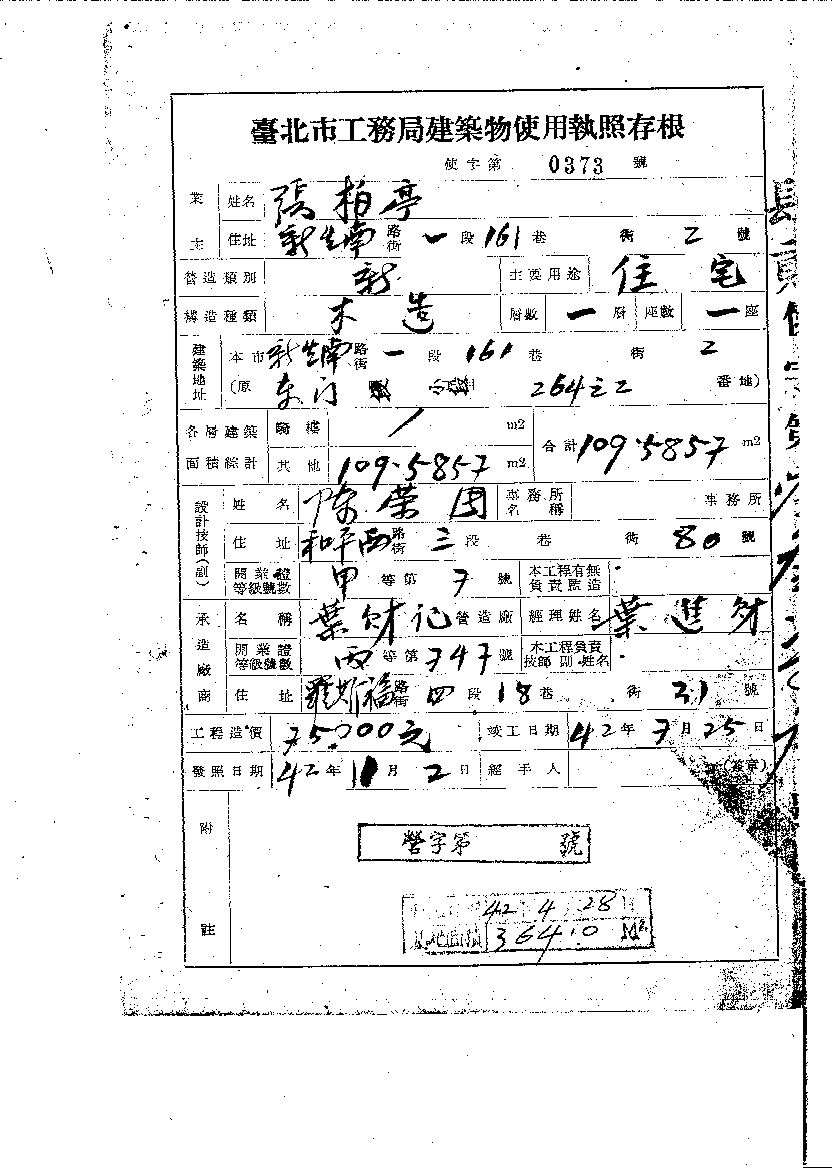 臺北市工務局建築物使用執照存根
使字第 0373 號
業主 姓名 張柏亭
住址 新生南路街 一段 161巷 街 2 號
營造類別 新 主要用途 住宅
構造種類 木造 層數 一層 座數 一座
建築地址 本市 新生南路街 一段 161巷 街 2
(原 東門 264之2 番地)
各層建築面積綜計 騎樓 / m2 合計 109.5857 m2
其他 109.5857 m2
設計技師(副) 姓名 陳榮周 事務所名稱 事務所
住址 和平西路街 三段 巷 街 80 號
開業證等級號數 甲等第 7 號 本工程有無負責監造
承造廠商 名稱 葉財記營造廠 經理姓名 葉進財
開業證等級號數 丙等第 747 號 本工程負責技師副姓名
住址 羅斯福路街 四段 18巷 街 31 號
工程造價 75,000元 竣工日期 42年 7月 25日
發照日期 42年 11月 2日 經手人 (簽章)
附註
營字第 號
42 4 28
基地面積 364.0 M2